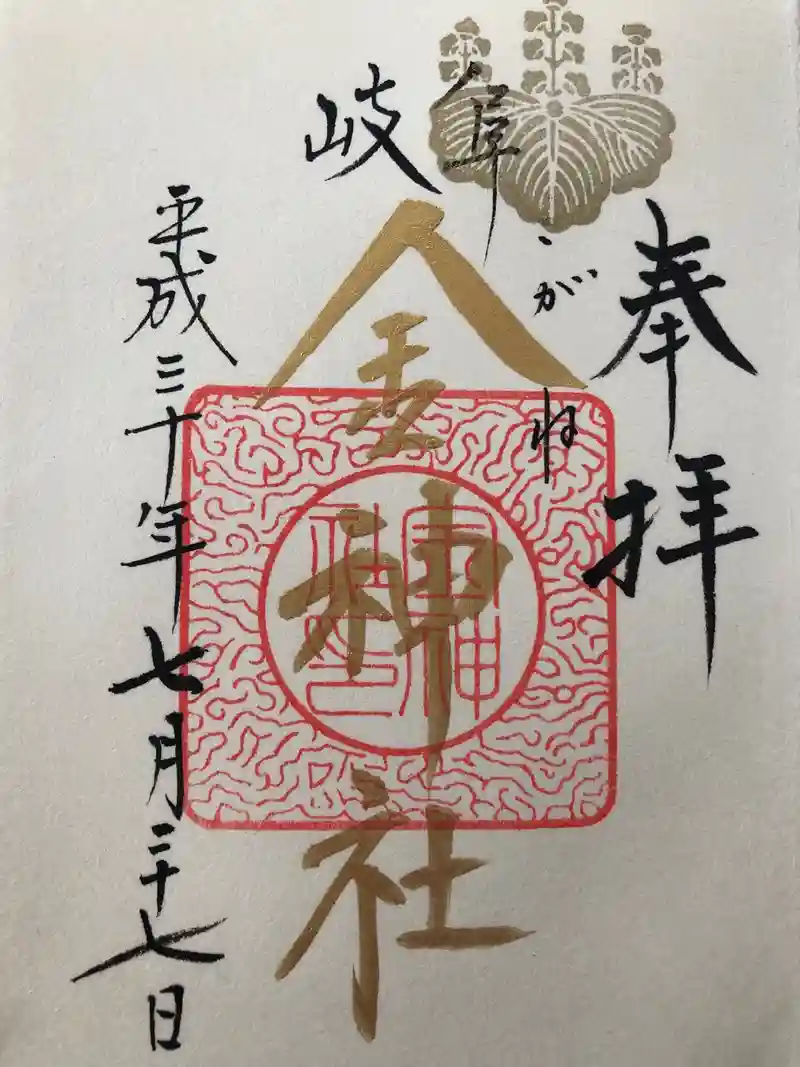 奉拝
岐阜
こがね
金神社
平成三十年七月二十七日